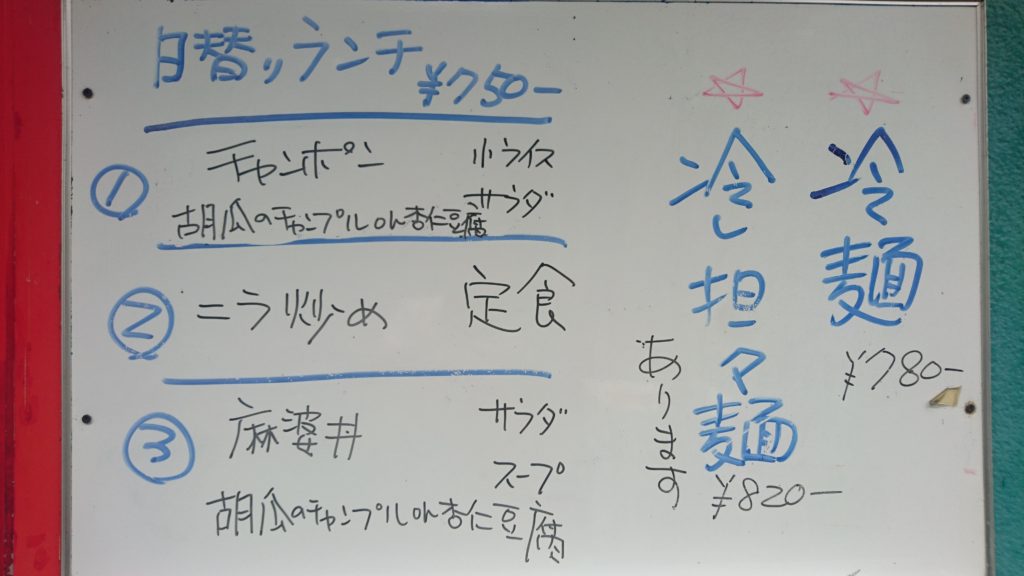 日替りランチ
¥750-
① チャンポン 小ライス
サラダ
胡瓜のチャンプルon杏仁豆腐
② ニラ炒め 定食
③ 麻婆丼 サラダ
スープ
胡瓜のチャンプルon杏仁豆腐
☆冷麺
¥780-
☆冷し担々麺
¥820-
あります